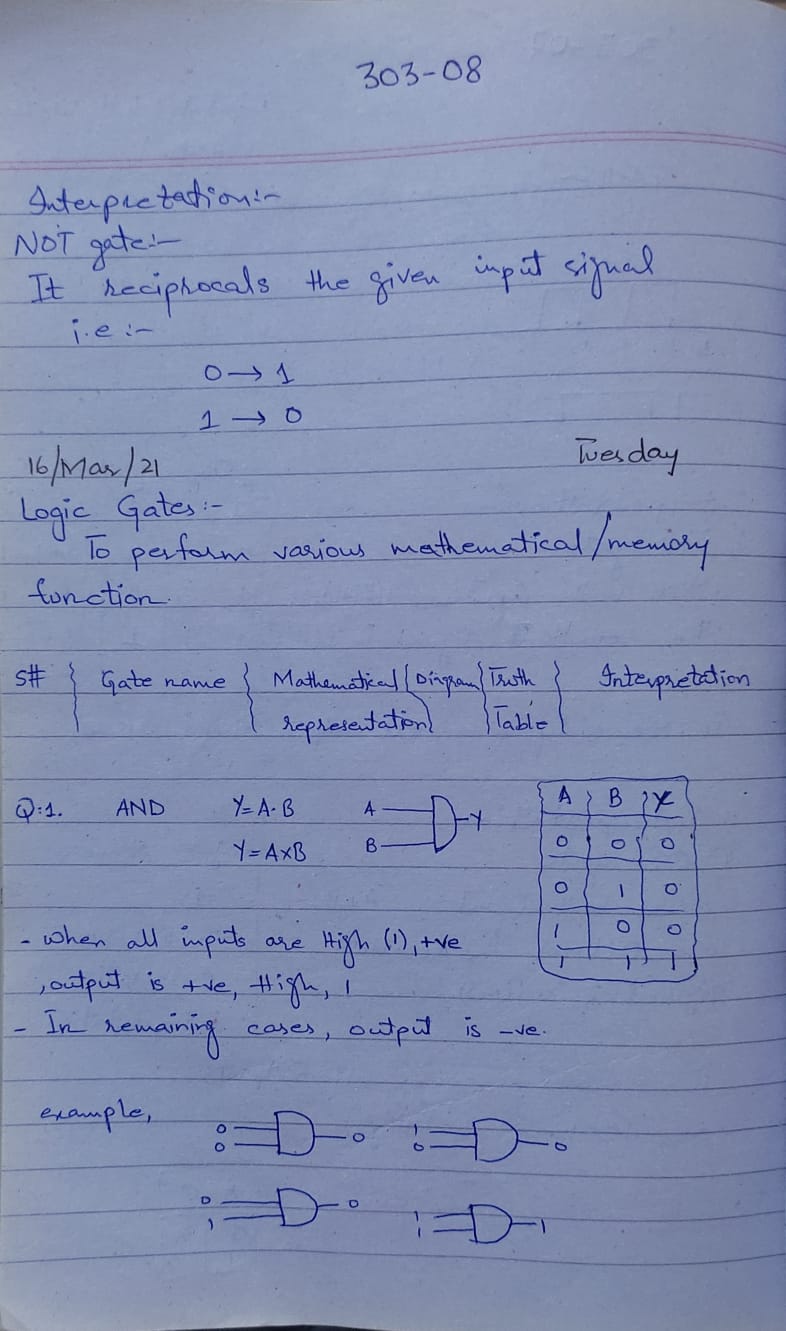 303-08
Interpretation:-
NOT gate:-
It reciprocals the given input signal
i.e :-
0 → 1
1 → 0
16/Mar/21 Tuesday
Logic Gates:-
To perform various mathematical/memory
function.
S# Gate name Mathematical Diagram Truth Interpretation
representation Table
Q:1. AND Y=A·B A B Y
Y=A×B
A B Y
0 0 0
0 1 0
1 0 0
1 1 1
- When all inputs are High (1), +ve
, output is +ve, High, 1
- In remaining cases, output is -ve.
example,
0 0 0 1 0 0
0 1 0 1 1 1